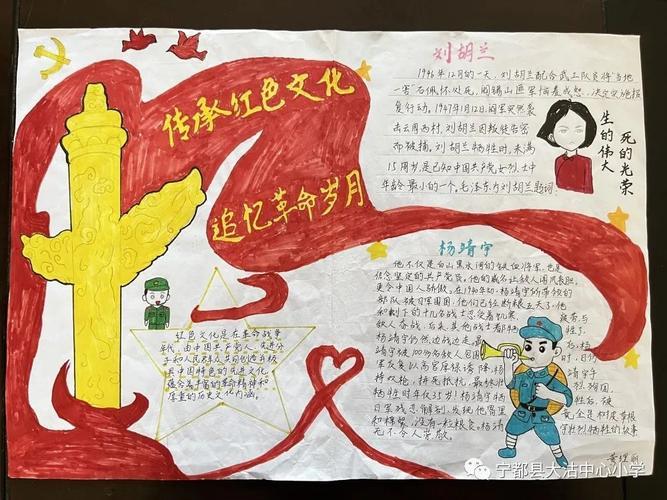 传承红色文化
追忆革命岁月
红色文化是在革命战争
年代,由中国共产党人、先进分
子和人民群众共同创造并极
具中国特色的先进文化
蕴含着丰富的革命精神和
厚重的历史文化内涵。
刘胡兰
1946年12月的一天,刘胡兰配合武工队员将"当地
一害"石佩怀处死,阎锡山匪军恼羞成怒,决定实施报
复行动。1947年1月12日,阎军突然袭
击云周西村,刘胡兰因叛徒告密
而被捕。刘胡兰牺牲时,未满
15周岁,是已知中国共产党女烈士中
年龄最小的一个,毛泽东为刘胡兰题词:
生的伟大
死的光荣
杨靖宇
他不仅是白山黑水间的铁血将军,也是
信念坚定的共产党员。他的威名让敌人闻风丧胆,
更令中国人骄傲。在1940年初,杨靖宇所率领的
部队被日军围困,他们已经断粮五天了,他
和剩下的十几名战士忍受着饥饿、
疲劳与
敌人奋战,后来其他战士看
牲了,
杨靖宇仍然边战边走,
靖宇被
军
持
牺牲时年仅35岁!杨靖宇牺
日军残忍解剖,发现他胃里
和棉絮,没有一粒粮食。杨靖
死不令人崇敬。
宁都县大沽中心小学